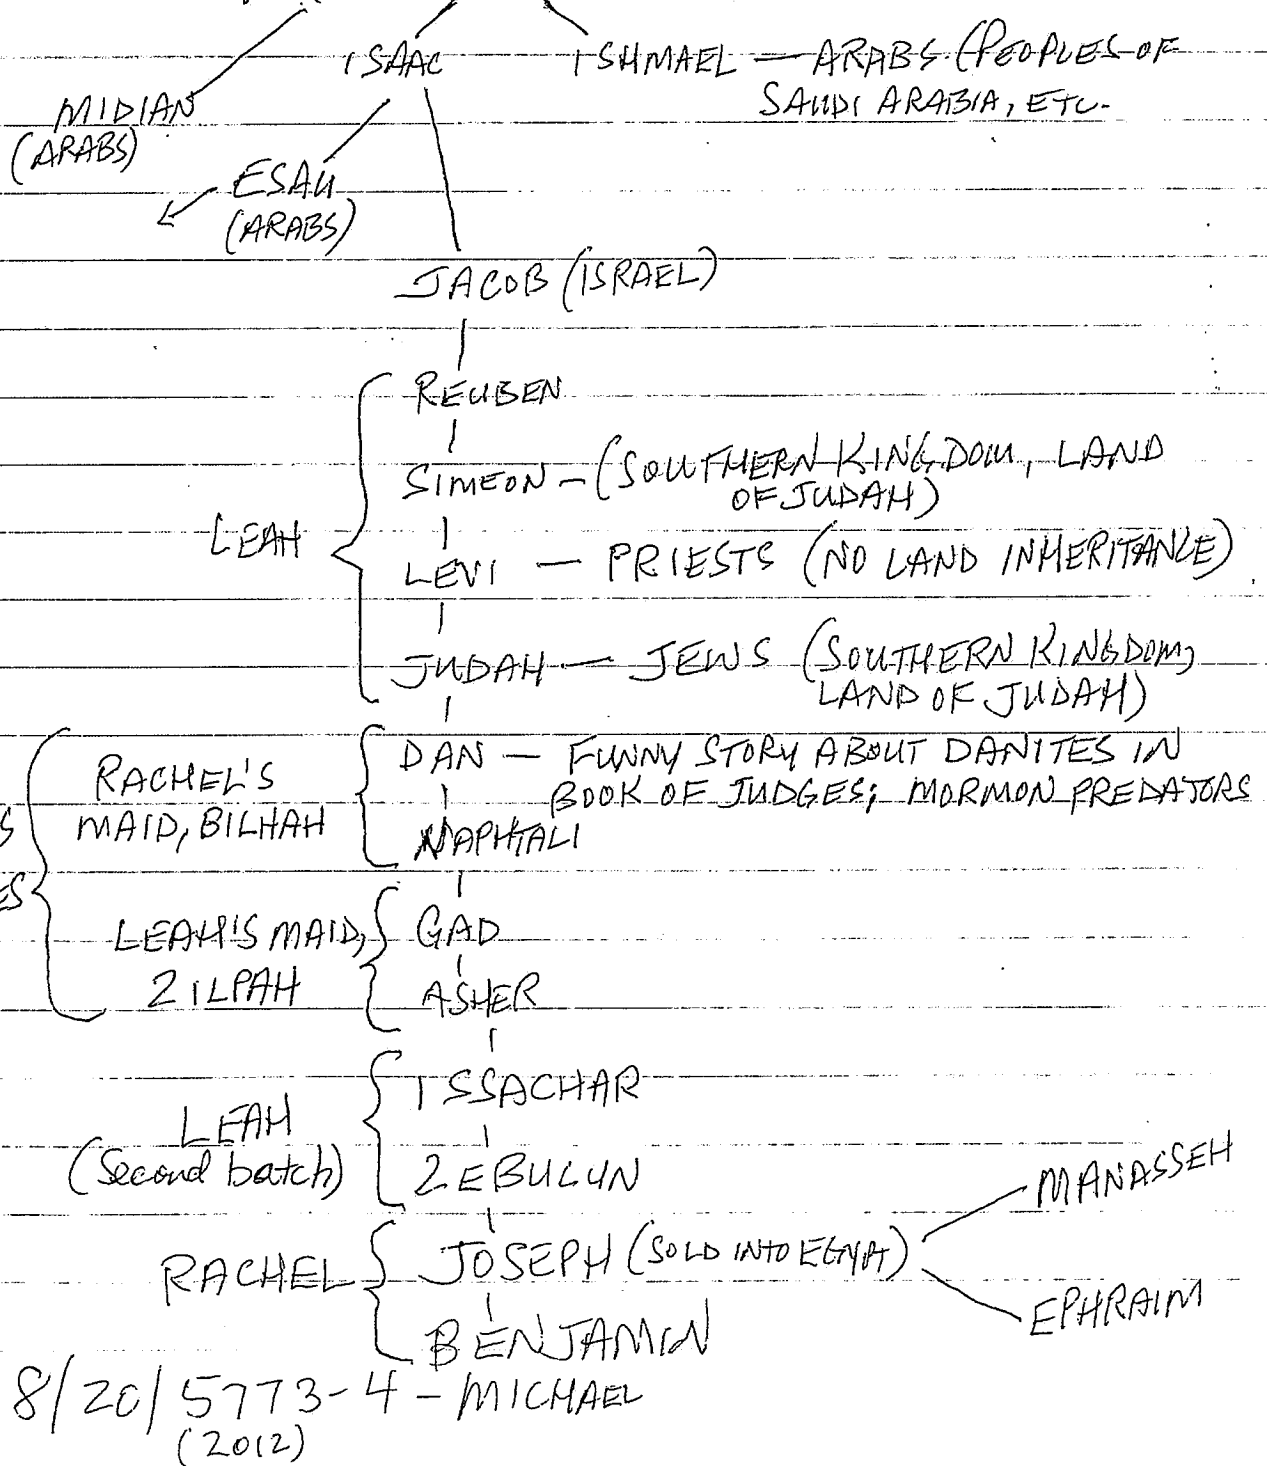 ISAAC
ISHMAEL — ARABS (PEOPLES OF
SAUDI ARABIA, ETC.
MIDIAN
(ARABS)
ESAU
(ARABS)
JACOB (ISRAEL)
REUBEN
SIMEON - (SOUTHERN KINGDOM, LAND
OF JUDAH)
LEAH
LEVI — PRIESTS (NO LAND INHERITANCE)
JUDAH — JEWS (SOUTHERN KINGDOM,
LAND OF JUDAH)
RACHEL'S
MAID, BILHAH
DAN — FUNNY STORY ABOUT DANITES IN
BOOK OF JUDGES; MORMON PREDATORS
NAPHTALI
LEAH'S MAID,
ZILPAH
GAD
ASHER
LEAH
(Second batch)
ISSACHAR
ZEBULUN
RACHEL
JOSEPH (SOLD INTO EGYPT)
MANASSEH
EPHRAIM
BENJAMIN
8/20/5773-4 - MICHAEL
(2012)